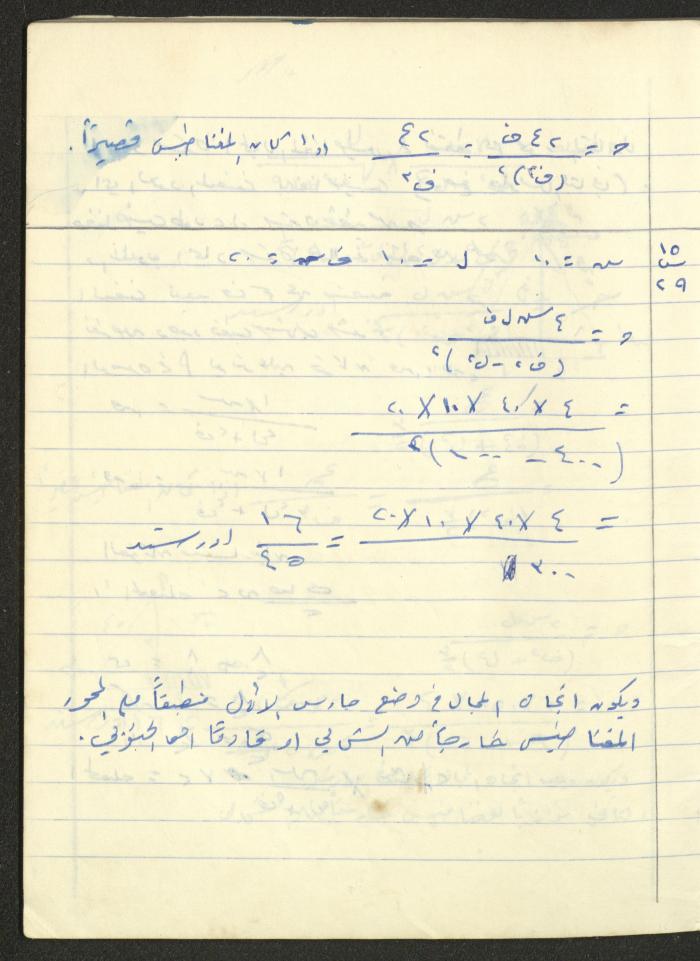 ح = ٢ع ف / (ف٢)٢ = ٢ع / ف٣ اذا كان المغناطيس قصيراً .
١٥ س ٢٩
س = ١٠ ل = ١٠ ف = ٢٠
ح = ٤ س ل ف / (ف٢ – ل٢)٢
= ٤ × ٤٠ × ١٠ × ٢٠ / (٤٠٠ – ١٠٠)٢
= ٤ × ٤٠ × ١٠ × ٢٠ / ٣٠٠ = ١٦ / ٤٥ اورستد
ويكون اتجاه المجال في وضع جاوس الاول منطبقاً مع المحور
المغناطيس خارجاً من الشمالي او قادماً الى الجنوبي .